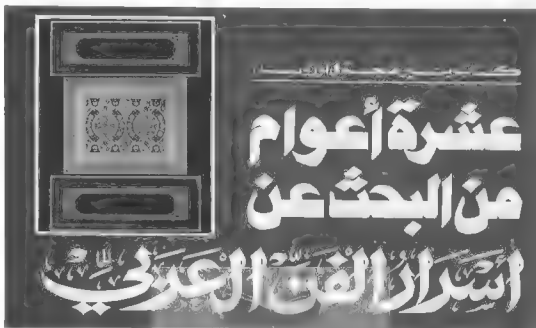 عشرة أعوام
من البحث عن
أسرار الفن العربي